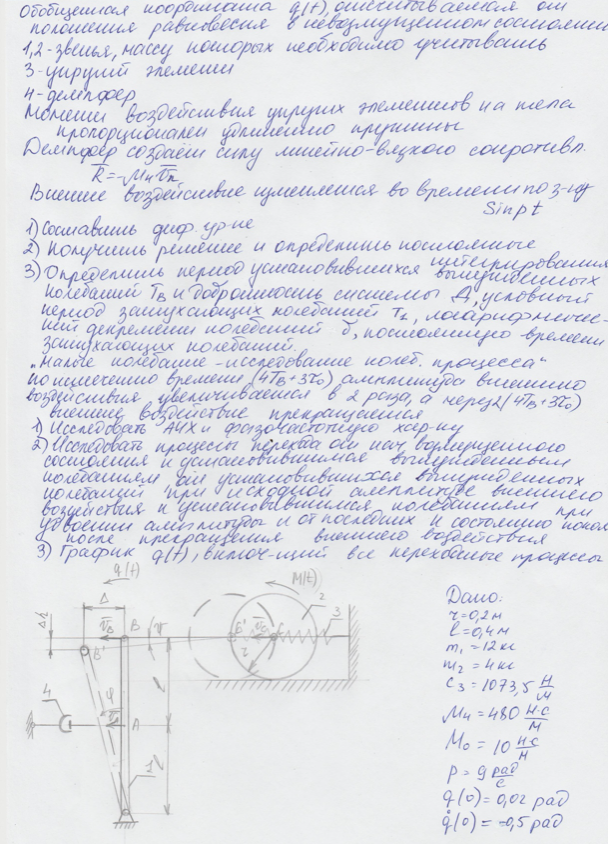 Обобщенная координата q(t), отсчитываемая от
положения равновесия в невозмущенном состоянии
1,2-звенья, массу которых необходимо учитывать
3-упругий элемент
4-демпфер
Моменты воздействия упругих элементов на тела
пропорционален удлинению пружины
Демпфер создает силу линейно-вязкого сопротивл.
R̅=-μ₄v̅п
Внешнее воздействие изменяется во времени по з-ну
Sinpt
1) Составить диф. ур-ие
2) Получить решение и определить постоянные
интегрирования
3) Определить период установившихся вынужденных
колебаний Tв и добротность системы Д, условный
период затухающих колебаний T*, логарифмичес-
кий декремент колебаний δ, постоянную времени
затухающих колебаний.
"Малые колебание-исследование колеб. процесса"
по истечению времени (4Tв+3τ₀) амплитуда внешнего
воздействия увеличивается в 2 раза, а через 2(4Tв+3τ₀)
внешнее воздействие прекращается
1) Исследовать АЧХ и фазочастотную хар-ку
2) Исследовать процессы перехода от нач возмущенного
состояния к установившимся вынужденным
колебаниям, от установившихся вынужденных
колебаний при исходной амплитуде внешнего
воздействия к установившимся колебаниям при
удвоении амплитуды и от последних к состоянию покоя
после прекращения внешнего воздействия
3) График q(t), включ-щий все переходные процессы
q(t)
Δ
Δh
V̅B
B
B'
M(t)
2
3
r
4
φ
A
l
l
1
Дано:
r=0,2м
l=0,4м
m₁=12кг
m₂=4кг
C₃=1073,5 Н/м
μ₄=480 Н·с/м
M₀=10 Н·с/м
p=9 рад/с
q(0)=0,02 рад
q̇(0)=-0,5 рад